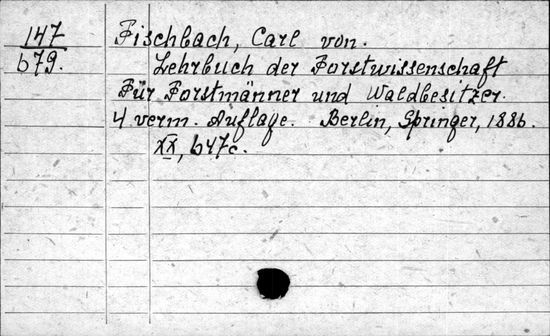 147 Fischbach, Carl von.
679. Lehrbuch der Forstwissenschaft
Für Forstmänner und Waldbesitzer.
4 verm. Auflage. Berlin, Springer, 1886.
XX, 647c.